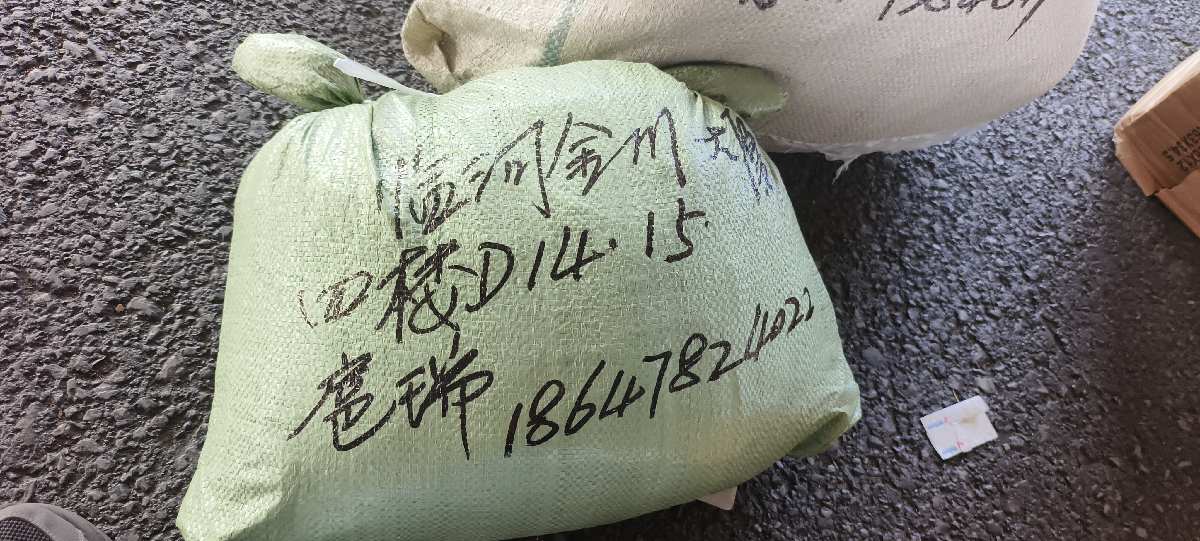 临河金川大厦
四楼D14.15.
扈瑞 18647824022